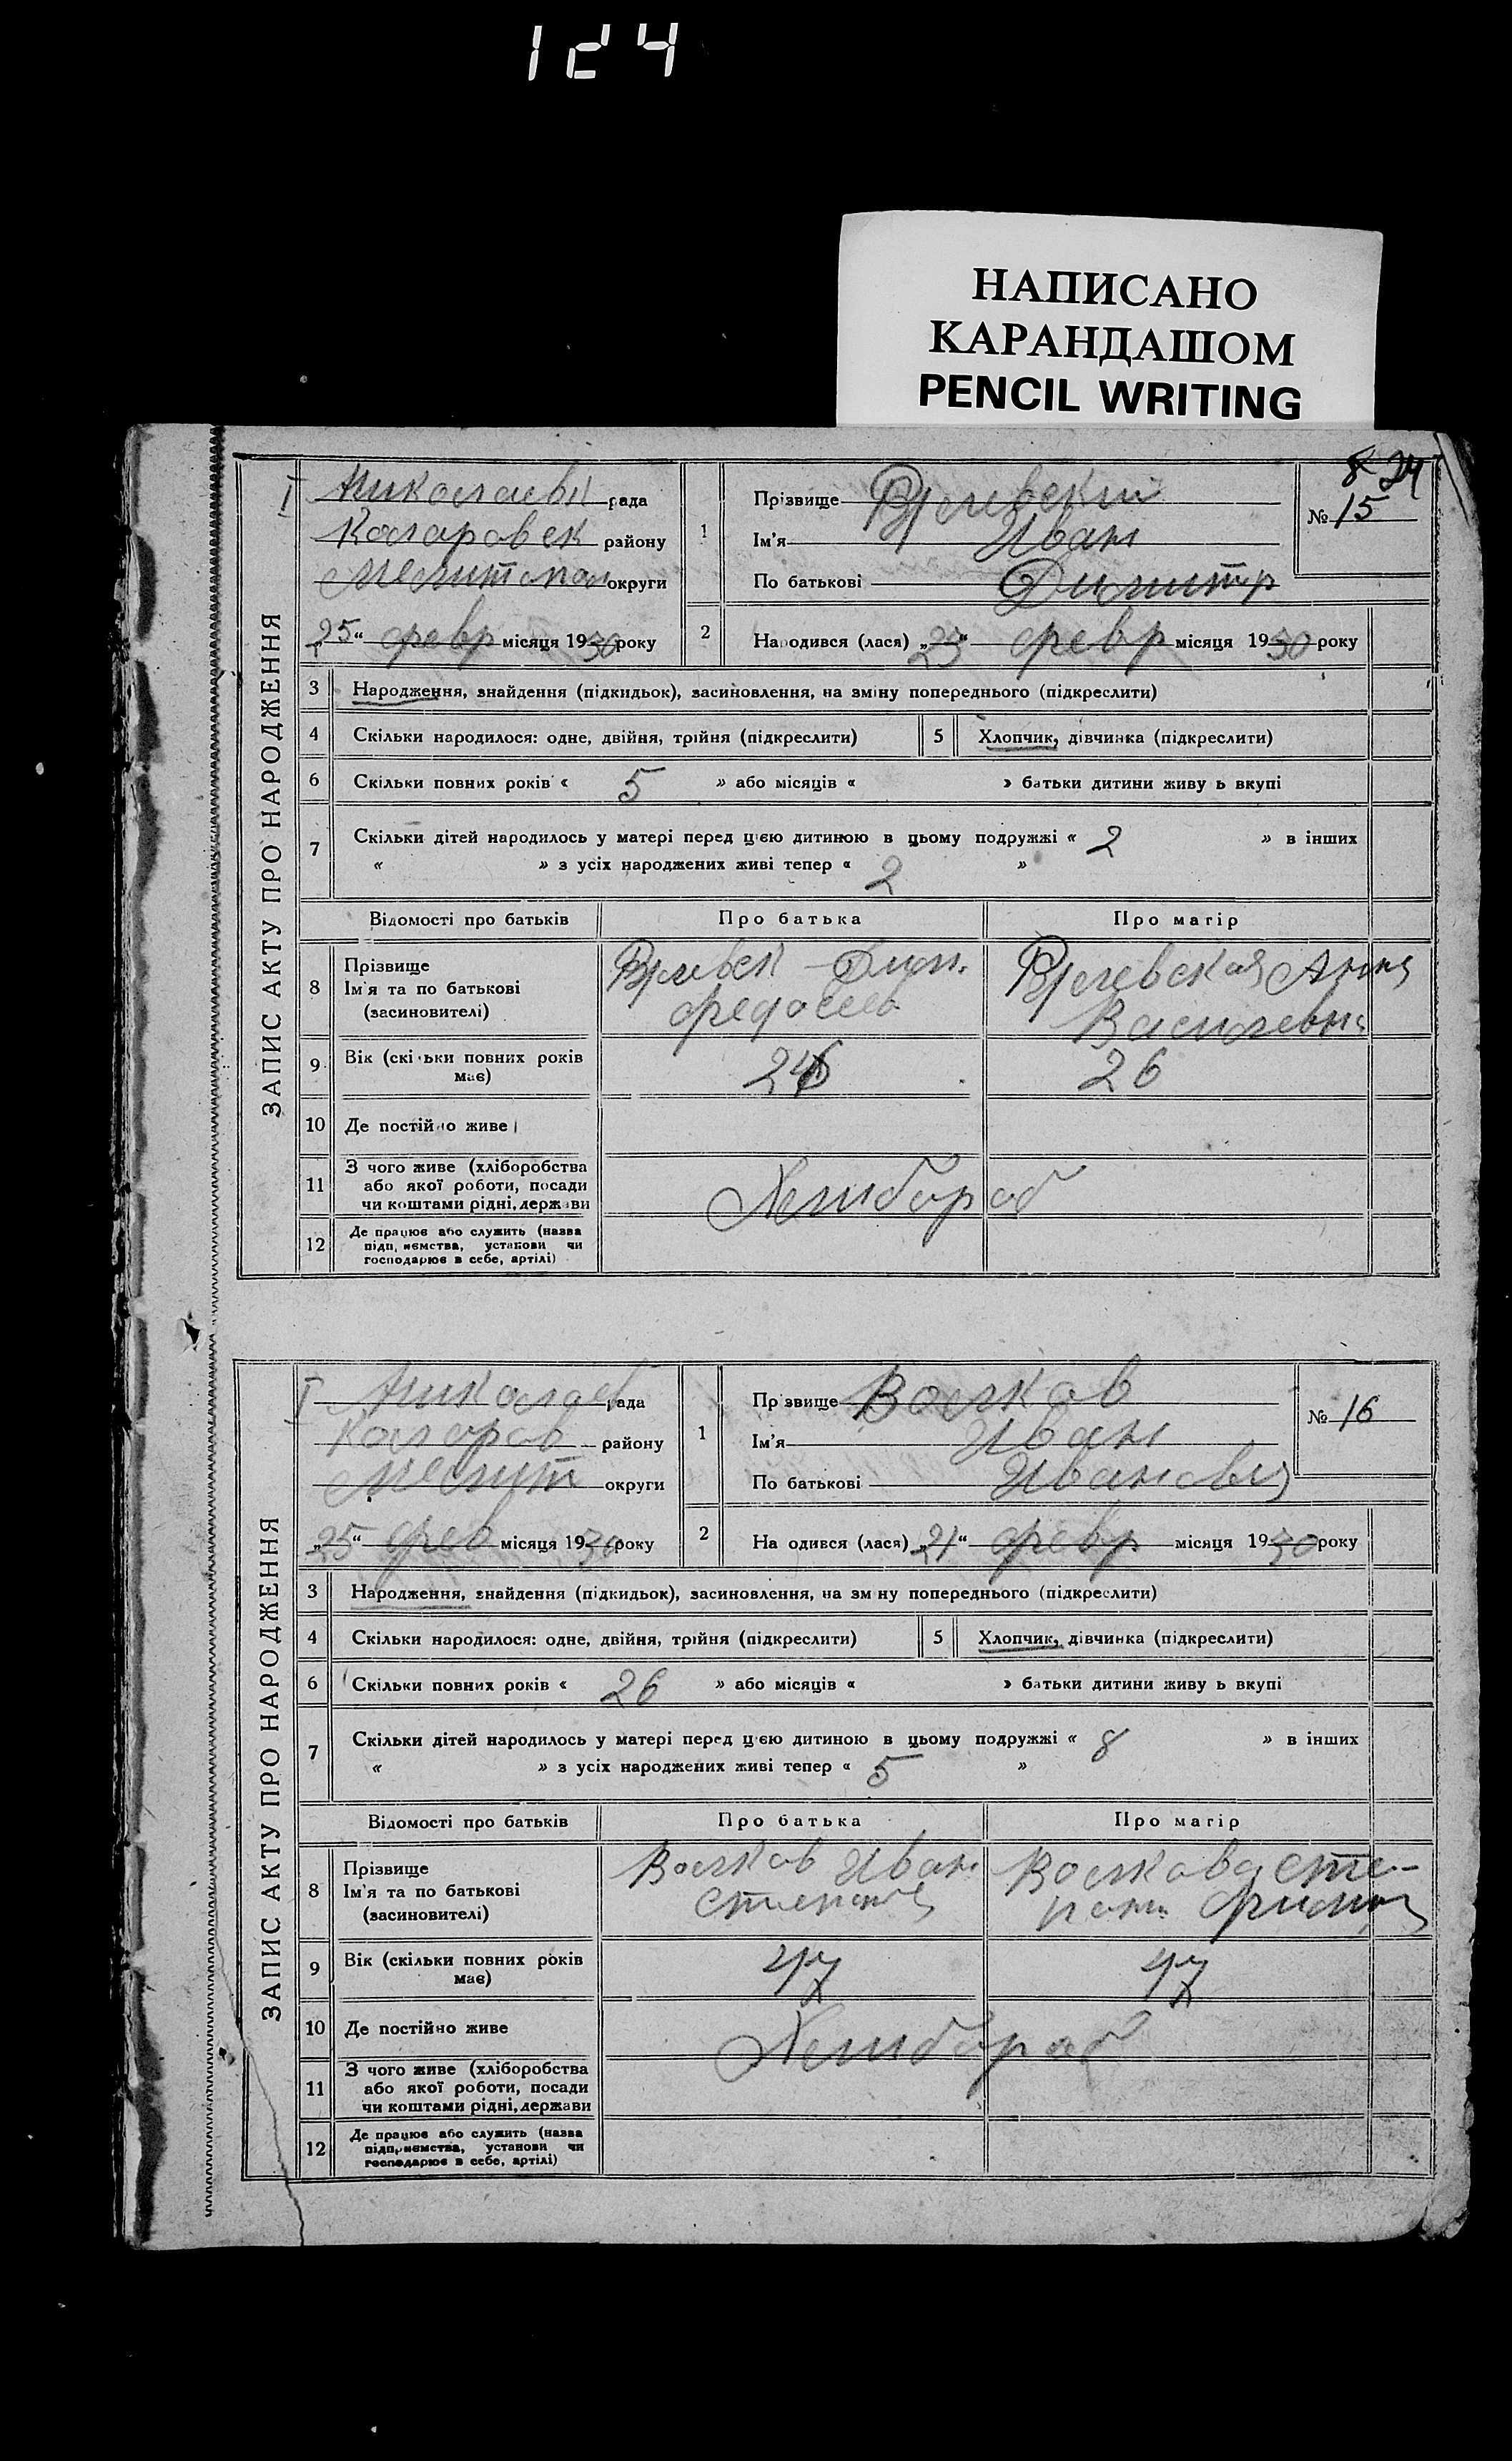 124
НАПИСАНО
КАРАНДАШОМ
PENCIL WRITING
8 24
ЗАПИС АКТУ ПРО НАРОДЖЕННЯ
I Николаевк рада
Коларовск району
Мелитопол округи
„25“ февр місяця 1930 року
1 Прізвище
Ім'я Иван
По батькові Димитр
№ 15
2 Народився (лася) „23“ февр місяця 1930 року
3 Народження, знайдення (підкидьок), засиновлення, на зміну попереднього (підкреслити)
4 Скільки народилося: одне, двійня, трійня (підкреслити) 5 Хлопчик, дівчинка (підкреслити)
6 Скільки повних років « 5 » або місяців « » батьки дитини живу ь вкупі
7 Скільки дітей народилось у матері перед цією дитиною в цьому подружжі « 2 » в інших
« » з усіх народжених живі тепер « 2 »
Відомості про батьків Про батька Про матір
8 Прізвище
Ім'я та по батькові
(засновителі)
Анна
Василевна
9 Вік (скільки повних років має) 26
10 Де постійно живе
11 З чого живе (хліборобства
або якої роботи, посади
чи коштами рідні, держави
Хлибороб
12 Де працює або служить (назва
підприємства, установи чи
господарює в себе, артілі)
ЗАПИС АКТУ ПРО НАРОДЖЕННЯ
I Николаев рада
Коларов району
Мелит округи
„25“ фев місяця 1930 року
1 Прізвище Волков
Ім'я Иван
По батькові Иванович
№ 16
2 На одився (лася) „21“ февр місяця 1930 року
3 Народження, знайдення (підкидьок), засиновлення, на зм ну попереднього (підкреслити)
4 Скільки народилося: одне, двійня, трійня (підкреслити) 5 Хлопчик, дівчинка (підкреслити)
6 Скільки повних років « 26 » або місяців « » батьки дитини живу ь вкупі
7 Скільки дітей народилось у матері перед цією дитиною в цьому подружжі « 8 » в інших
« » з усіх народжених живі тепер « 5 »
Відомості про батьків Про батька Про матір
8 Прізвище
Ім'я та по батькові
(засиновителі)
Волков Иван
Волкова Сте-
9 Вік (скільки повних років має) 47 47
10 Де постійно живе
Хлибороб
11 З чого живе (хліборобства
або якої роботи, посади
чи коштами рідні, держави
12 Де працює або служить (назва
підприємства, установи чи
господарює в себе, артілі)